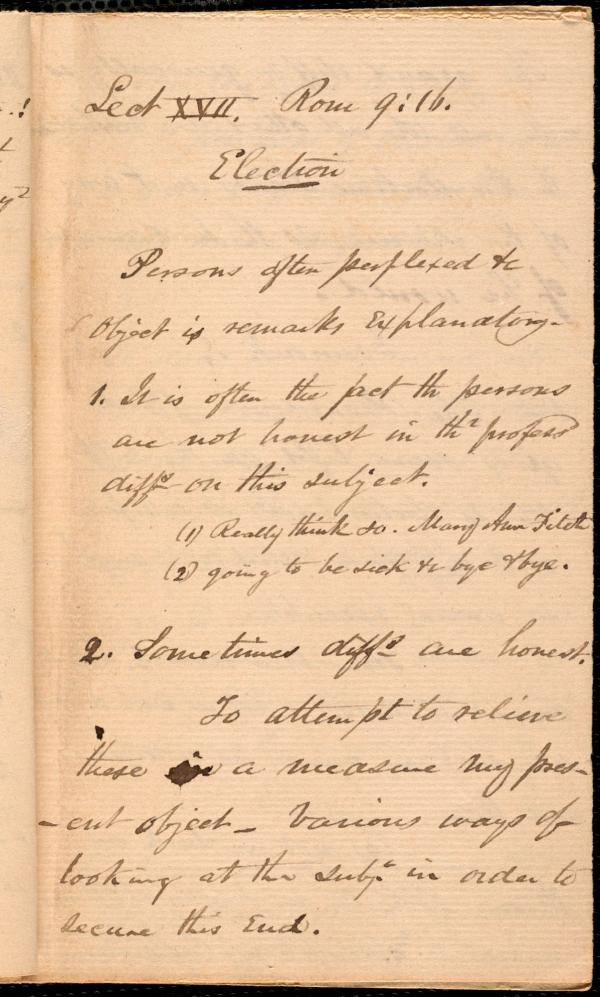 Lect XVII. Rom 9:16.
Election
Persons often perplexed &c
Object is remarks Explanatory-
1. It is often the fact th persons
are not honest in thr profess
diffs on this subject.
(1) Really think so. Mary Ann Fitch
(2) going to be sick &c bye & bye.
2. Sometimes diffs are honest.
To attempt to relieve
these in a measure my pres-
-ent object - Various ways of
looking at the subjt in order to
secure this End.